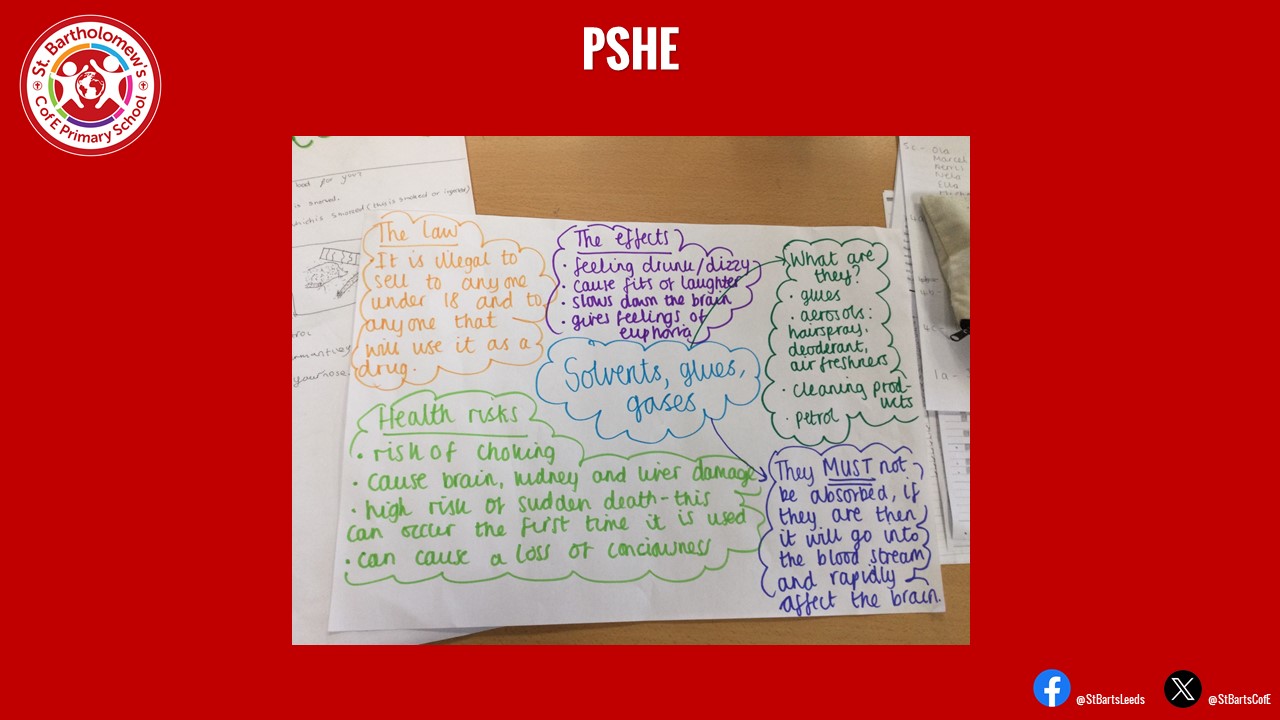 PSHE
St. Bartholomew's
CofE Primary School
bad for you?
is smoked.
which is smoked (this is smoked or injected)
your nose.
The law
It is illegal to
sell to anyone
under 18 and to
anyone that
will use it as a
drug.
The effects
· feeling drunk/dizzy
· cause fits of laughter
· slows down the brain
· gives feelings of
euphoria
What are
they?
· glues
· aerosols:
hairspray,
deoderant,
air fresheners
· cleaning prod-
ucts
· petrol
Solvents, glues,
gases
Health risks
· risk of choking
· cause brain, kidney and liver damage
· high risk of sudden death - this
can occur the first time it is used
· can cause a loss of conciowness
They MUST not
be absorbed, if
they are then
it will go into
the blood stream
and rapidly
affect the brain.
Marcel
1a -
@StBartsLeeds
@StBartsCofE